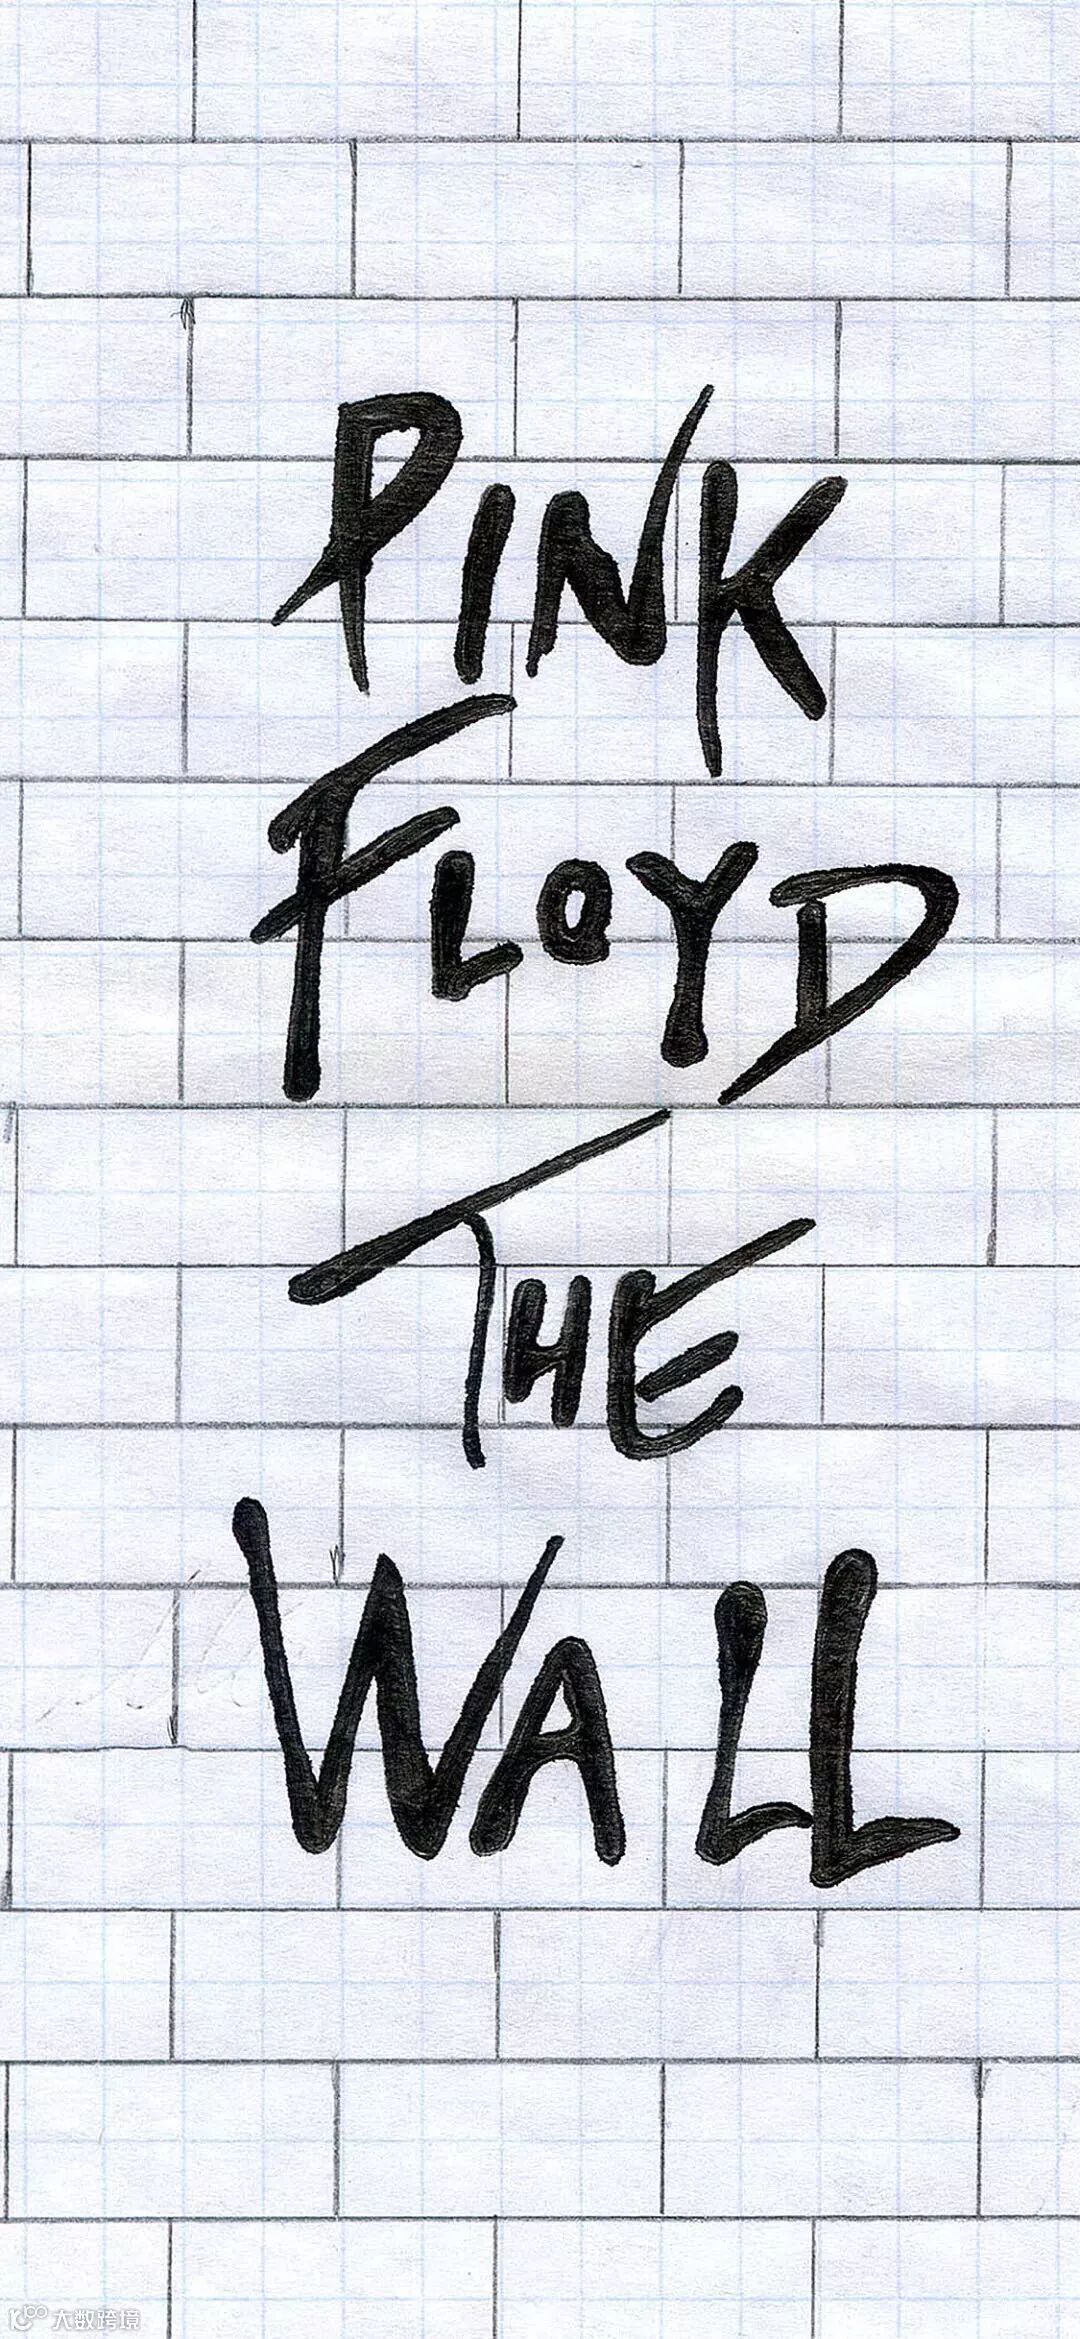 PINK
FLOYD
THE
WALL
大数跨境